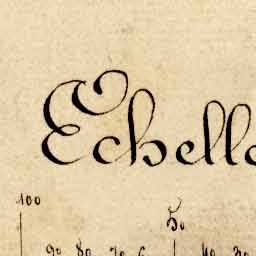 Echelle
100
50
90 80 70 6 40 30